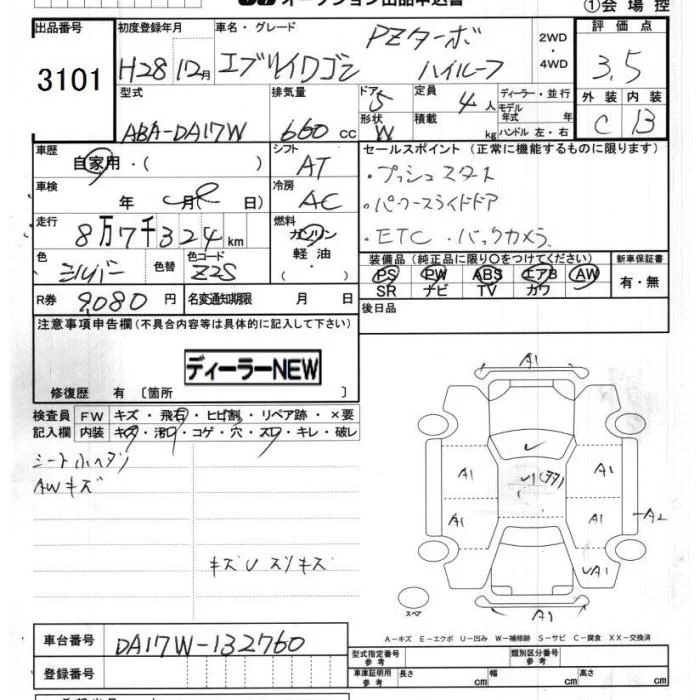 オークション出品申込書
①会場控
出品番号
3101
初度登録年月
H28 12月
車名・グレード
エブリイワゴン
PZターボ
ハイルーフ
2WD
・
4WD
評価点
3.5
外装 内装
C B
型式
ABA-DA17W
排気量
660 cc
ドア
5
形状
W
定員
4 人
積載
kg
ディーラー・並行
モデル
年式 年
ハンドル 左・右
車歴
自家用・( )
シフト
AT
車検
年 月( 日)
冷房
AC
走行
8万7千324km
燃料
ガソリン
軽油
・( )
色
シルバー
色替
色コード
Z2S
R券
9,080 円
名変通知期限 月 日
セールスポイント(正常に機能するものに限ります)
・プッシュスタート
・パワースライドドア
・ETC ・バックカメラ
装備品(純正品に限り○をつけてください)
PS PW ABS エアB AW
SR ナビ TV カワ
新車保証書
有・無
後日品
注意事項申告欄(不具合内容等は具体的に記入して下さい)
ディーラーNEW
修復歴 有〔箇所 〕
検査員
記入欄
FW キズ・飛石・ヒビ割・リペア跡・×要
内装 キズ・汚れ・コゲ・穴・スレ・キレ・破レ
シート小ヘタリ
AWキズ
キズUスリキズ
A1
A1
A1
A1
A1
A2
UA1
A1
スペア
A-キズ E-エクボ U-凹み W-補修跡 S-サビ C-腐食 XX-交換済
車台番号
DA17W-132760
登録番号
型式指定番号
参考
類別区分番号
参考
車庫証明用
参考
長さ cm
幅 cm
高さ cm